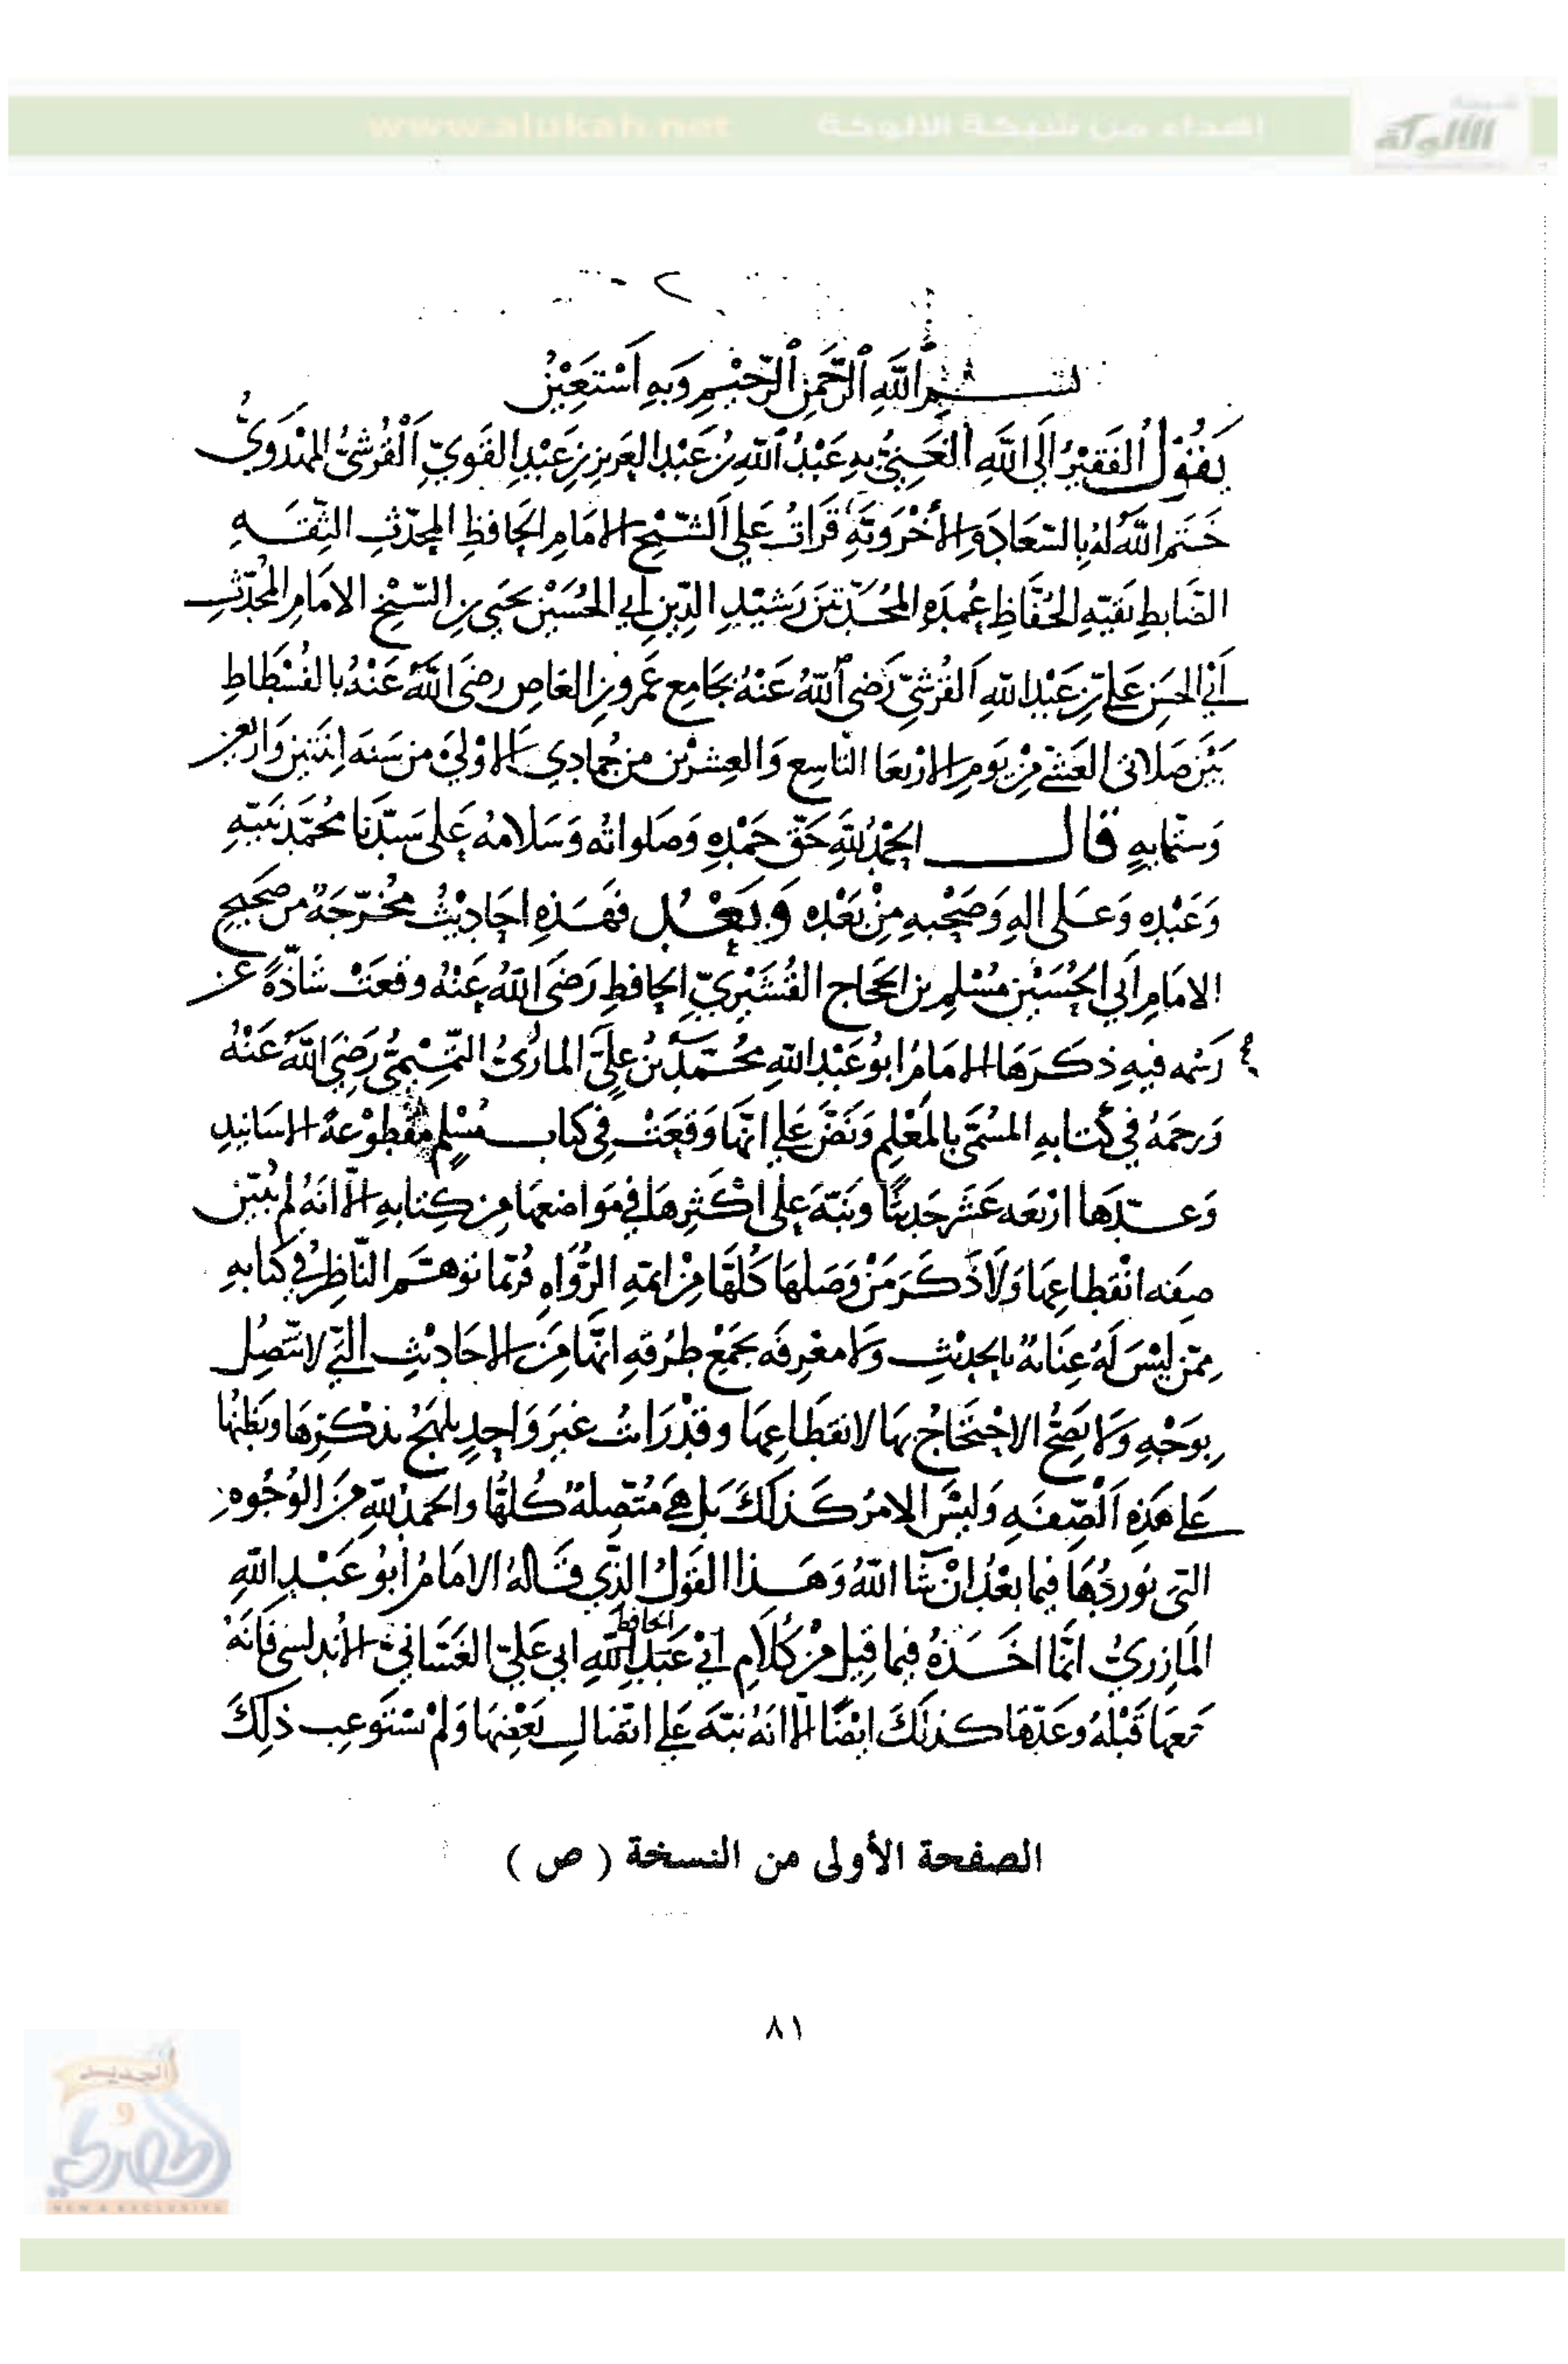 www.alukah.net إهداء من شبكة الألوكة
شبكة
الألوكة
٢
بسم الله الرحمن الرحيم وبه أستعين
يقول الفقير إلى الله الغني به عبد الله بن عبد العزيز بن عبد القوي القرشي المهدوي
ختم الله له بالسعادة الأخروية قرات على الشيخ الامام الحافظ المحدث الثقه
الضابط بقيه الحفاظ عمده المحدثين رشيد الدين أبي الحسين يحيى بن الشيخ الامام المحدث
أبي الحسن علي بن عبد الله القرشي رضي الله عنه بجامع عمرو بن العاص رضي الله عنه بالفسطاط
بين صلاتي العشي من يوم الاربعا التاسع والعشرين من جمادي الاولي من سنه اثنتين واربعين
وستمايه قال الحمد لله حق حمده وصلواته وسلامه على سيدنا محمد نبيه
وعبده وعلى اله وصحبه من بعده وبعد فهذه احاديث مخرجة من صحيح
الامام أبي الحسين مسلم بن الحجاج القشيري الحافظ رضي الله عنه وقعت شاذة عن
رسمه فيه ذكرها الامام ابو عبد الله محمد بن علي المازري التميمي رضي الله عنه
ورحمه في كتابه المسمى بالمعلم ونص على انها وقعت في كتاب مسلم مقطوعة الاسانيد
وعدها اربعه عشر حديثا ونبه على أكثرها في مواضعها من كتابه الا انه لم يبين
صفه انقطاعها ولا ذكر من وصلها كلها من ايمه الرواه فربما توهم الناظر في كتابه
ممن ليس له عناية بالحديث ولا معرفه بجمع طرقه انها من الاحاديث التي لا تتصل
بوجه ولا يصح الاحتجاج بها لانقطاعها وقد رات غير واحد يلهج بذكرها ويظنها
على هذه الصفه وليس الامر كذلك بل هي متصلة كلها والحمد لله من الوجوه
التي نوردها فيما بعد ان شا الله وهذا القول الذي قاله الامام أبو عبد الله
المازري انما اخذه فيما قيل من كلام أبي عبد الله الحافظ ابي علي الغساني الاندلسي فانه
جمعها قبله وعدها كذلك ايضا الا انه نبه على اتصال بعضها ولم يستوعب ذلك
الصفحة الأولى من النسخة ( ص )
٨١
الجديد
و
الحصري
NEW & EXCLUSIVE